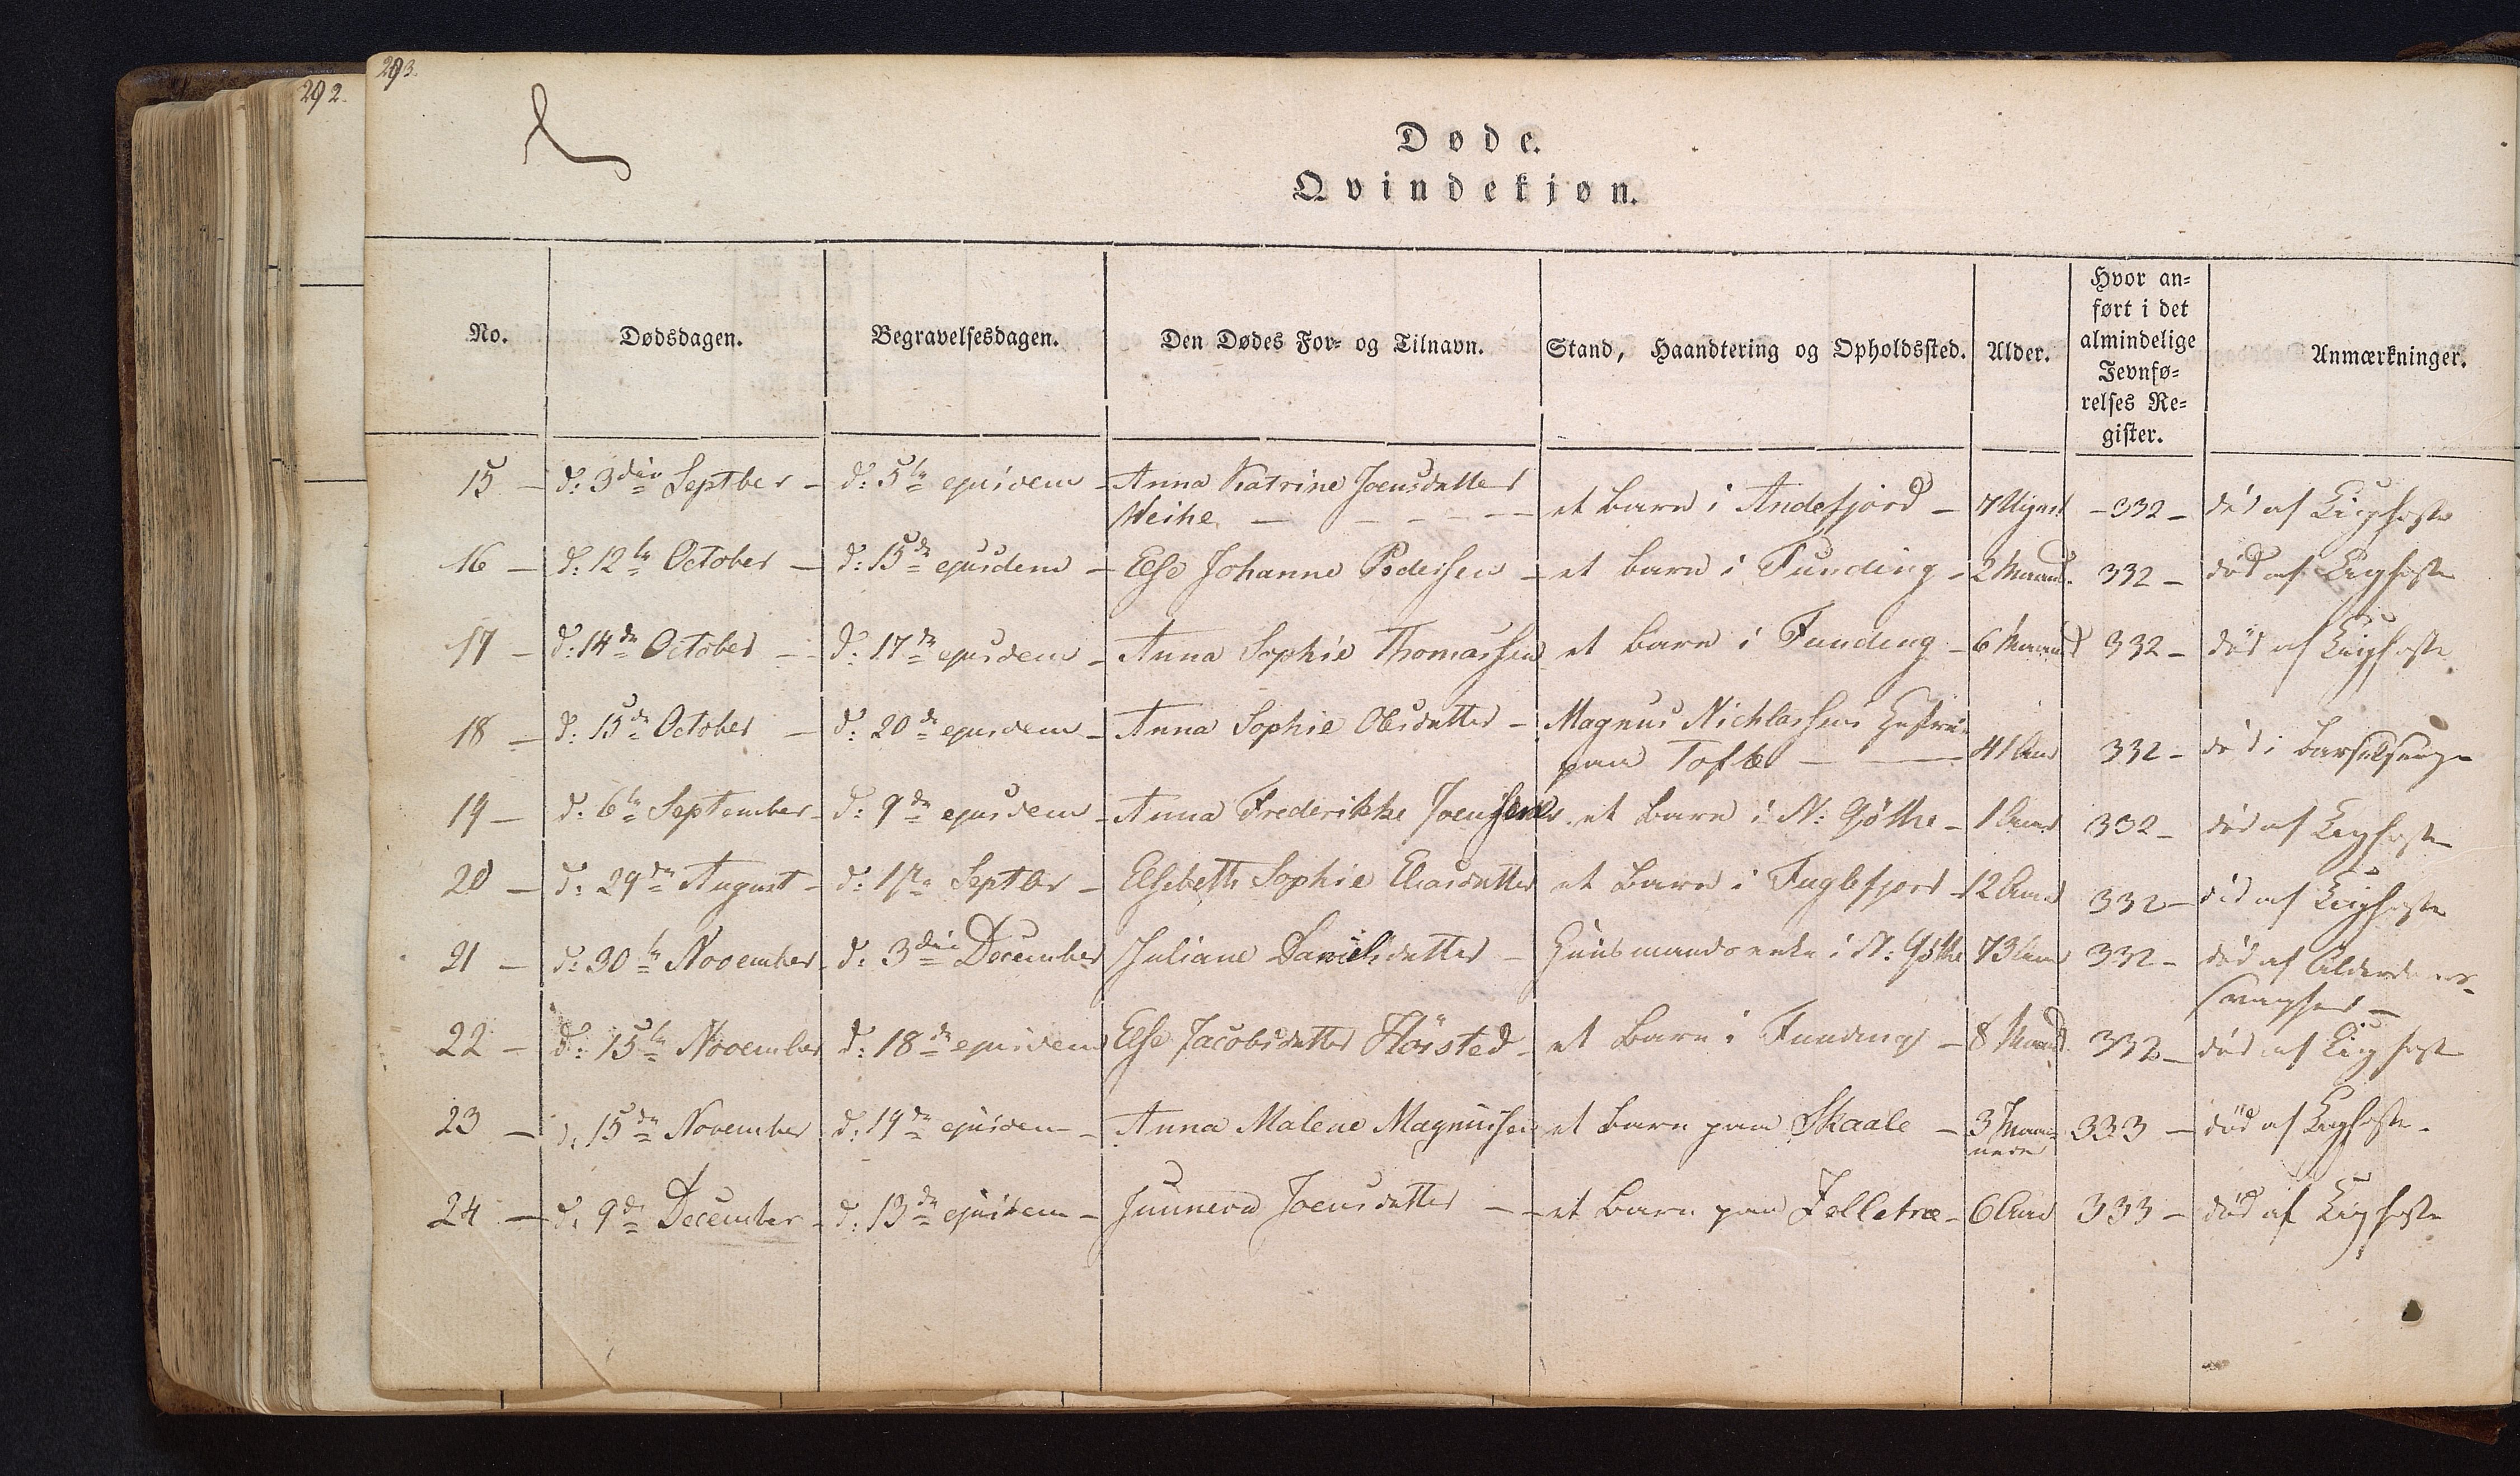 292.
293.
Døde.
Qvindekjøn.
No. Dødsdagen. Begravelsesdagen. Den Dødes For- og Tilnavn. Stand, Haandtering og Opholdssted. Alder. Anmærkninger.
Hvor an-
ført i det
almindelige
Jevnfø-
relses Re-
gister.
15 - d: 3die Septber - d: 5te ejusdem - Anna Katrine Joensdatter
Weihe - et Barn i Andefjord - 7 Uger - 332 - død af Kighoste
16 - d: 12te October - d: 15de ejusdem - Else Johanne Pedersen - et Barn i Funding - 2 Maan. 332 - død af Kighoste
17 - d: 14de October - d: 17de ejusdem - Anna Sophie Thomassen et Barn i Funding - 6 Maan 332 - død af Kighoste
18 - d: 15de October - d: 20de ejusdem - Anna Sophie Olesdatter - Magnus Nichlassens Hustru
paa Tofte - 41 Aar 332 - død i Barselseng
19 - d: 6te September - d: 9de ejusdem - Anna Frederikke Joensen et Barn i N: Gøthe - 1 Aar 332 - død af Kighoste
20 - d: 29de August - d: 1ste Septbr - Elsebeth Sophie Eliasdatter et Barn i Fuglefjord - 12 Aar 332 - død af Kighoste
21 - d: 30te November - d: 3die December Juliane Danielsdatter - Huusmandsenke i N: Gøthe 73 Aar 332 - død af Alderdoms-
svaghed -
22 - d: 15te November d: 18de ejusdem Else Jacobsdatter Hörsted - et Barn i Funding - 8 Maan 332 - død af Kighoste
23 - d: 15de November d: 19de ejusdem - Anna Malene Magnussen et Barn paa Skaale - 3 Maa-
neder 333 - død af Kighoste -
24 - d: 9de December - d: 13de ejusdem - Sunneva Joensdatter - et Barn paa Zelletræ - 6 Aar 333 - død af Kighoste